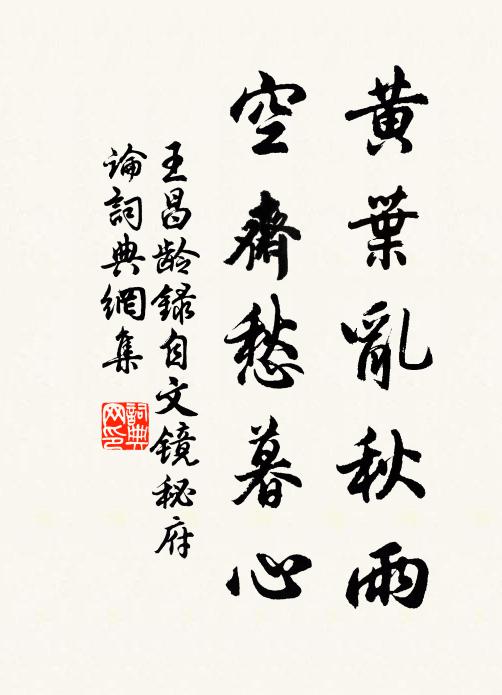 黃葉亂秋雨
空齋愁暮心
王昌龄録自文镜秘府
論詞典網集
詞典
网印